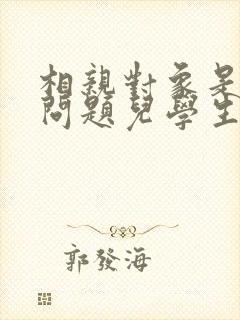 相親對象是
問題兒學生
郭發海